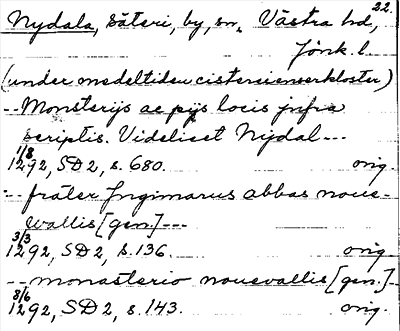 22.
Nydala, säteri, by, sn, Västra hd,
Jönk. l.
(under medeltiden cistercienserkloster)
-- Monsterijs ac pijs locis jnfra
scriptis. Videlicet Nijdal ---
1/8
1292, SD 2, s. 680. orig.
-- frater Jngimarus abbas noue-
wallis [gen.] ---
3/3
1292, SD 2, s. 136. orig.
-- monasterio nouevallis [gen.] --
8/6
1292, SD 2, s. 143. orig.